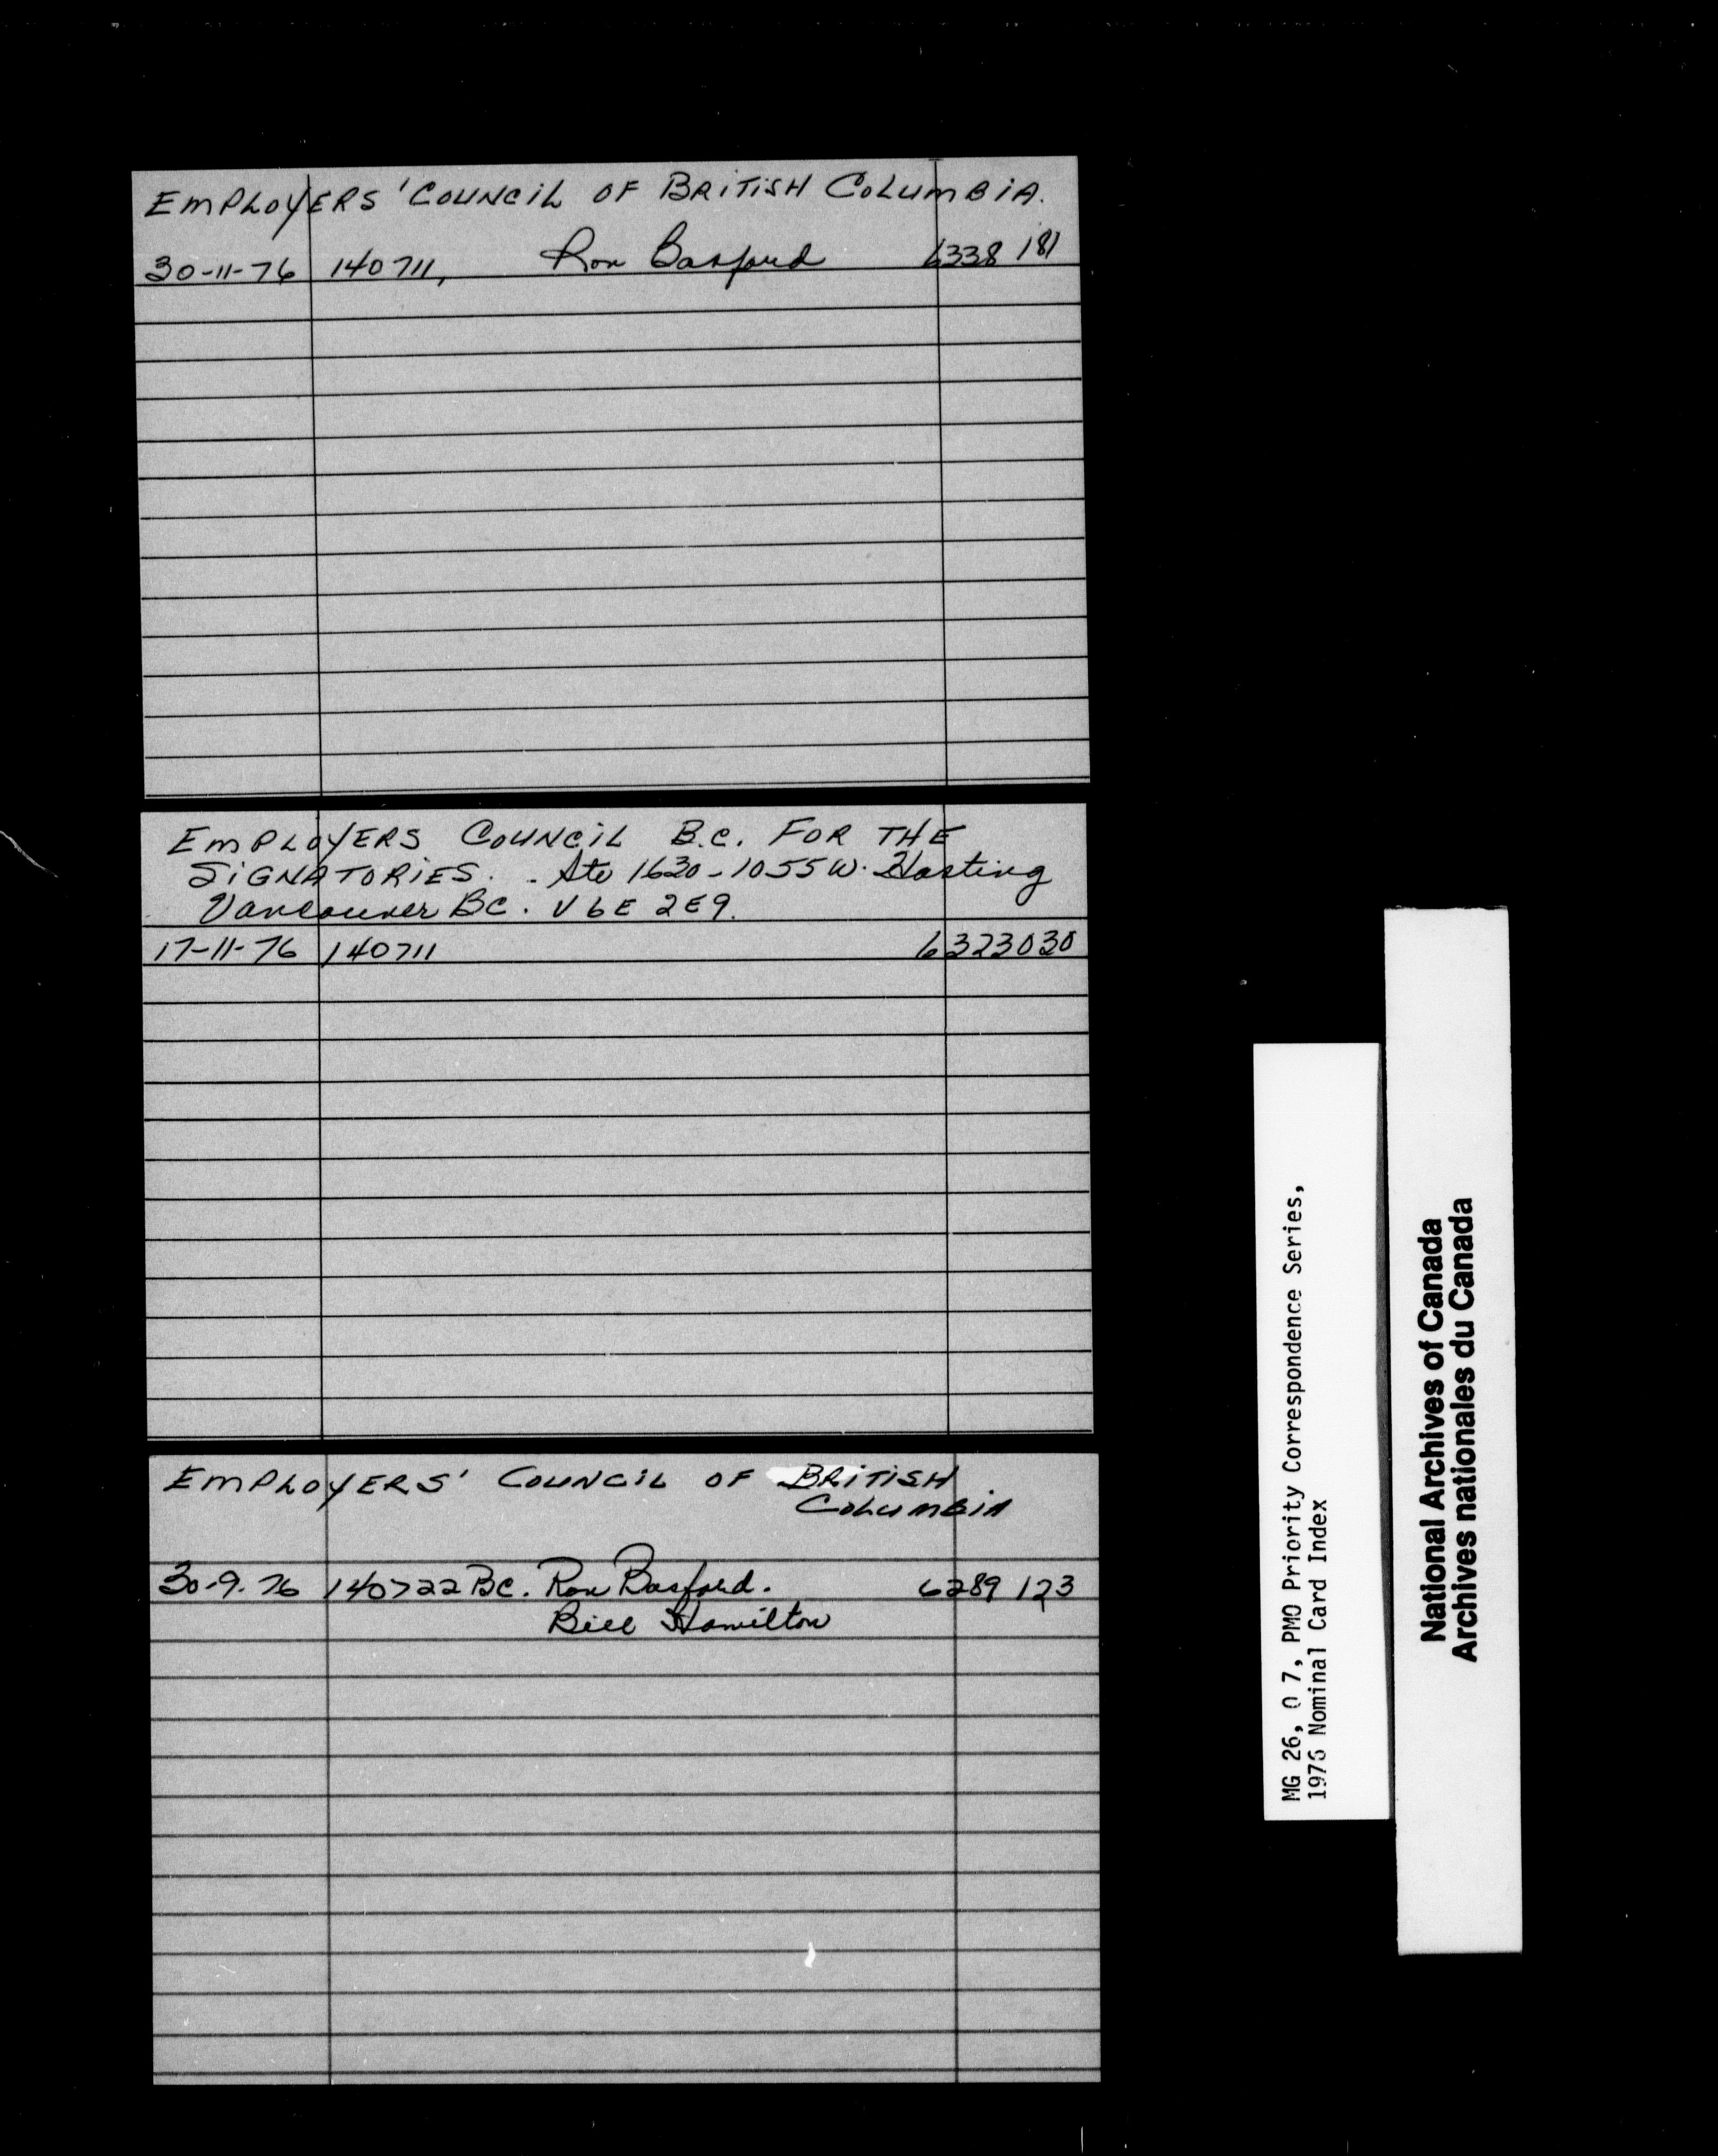 EMPLOYERS' COUNCIL OF BRITISH COLUMBIA.
30-11-76 140711, Ron Basford 6338 181
EMPLOYERS COUNCIL B.C. FOR THE
SIGNATORIES. - Ste 1630-1055 W. Hasting
Vancouver BC. V6E 2E9.
17-11-76 140711 6323030
EMPLOYERS' COUNCIL OF BRITISH
COLUMBIA
30-9-76 140722 BC. Ron Basford. 6289 123
Bill Hamilton
MG 26, O 7, PMO Priority Correspondence Series,
1976 Nominal Card Index
National Archives of Canada
Archives nationales du Canada